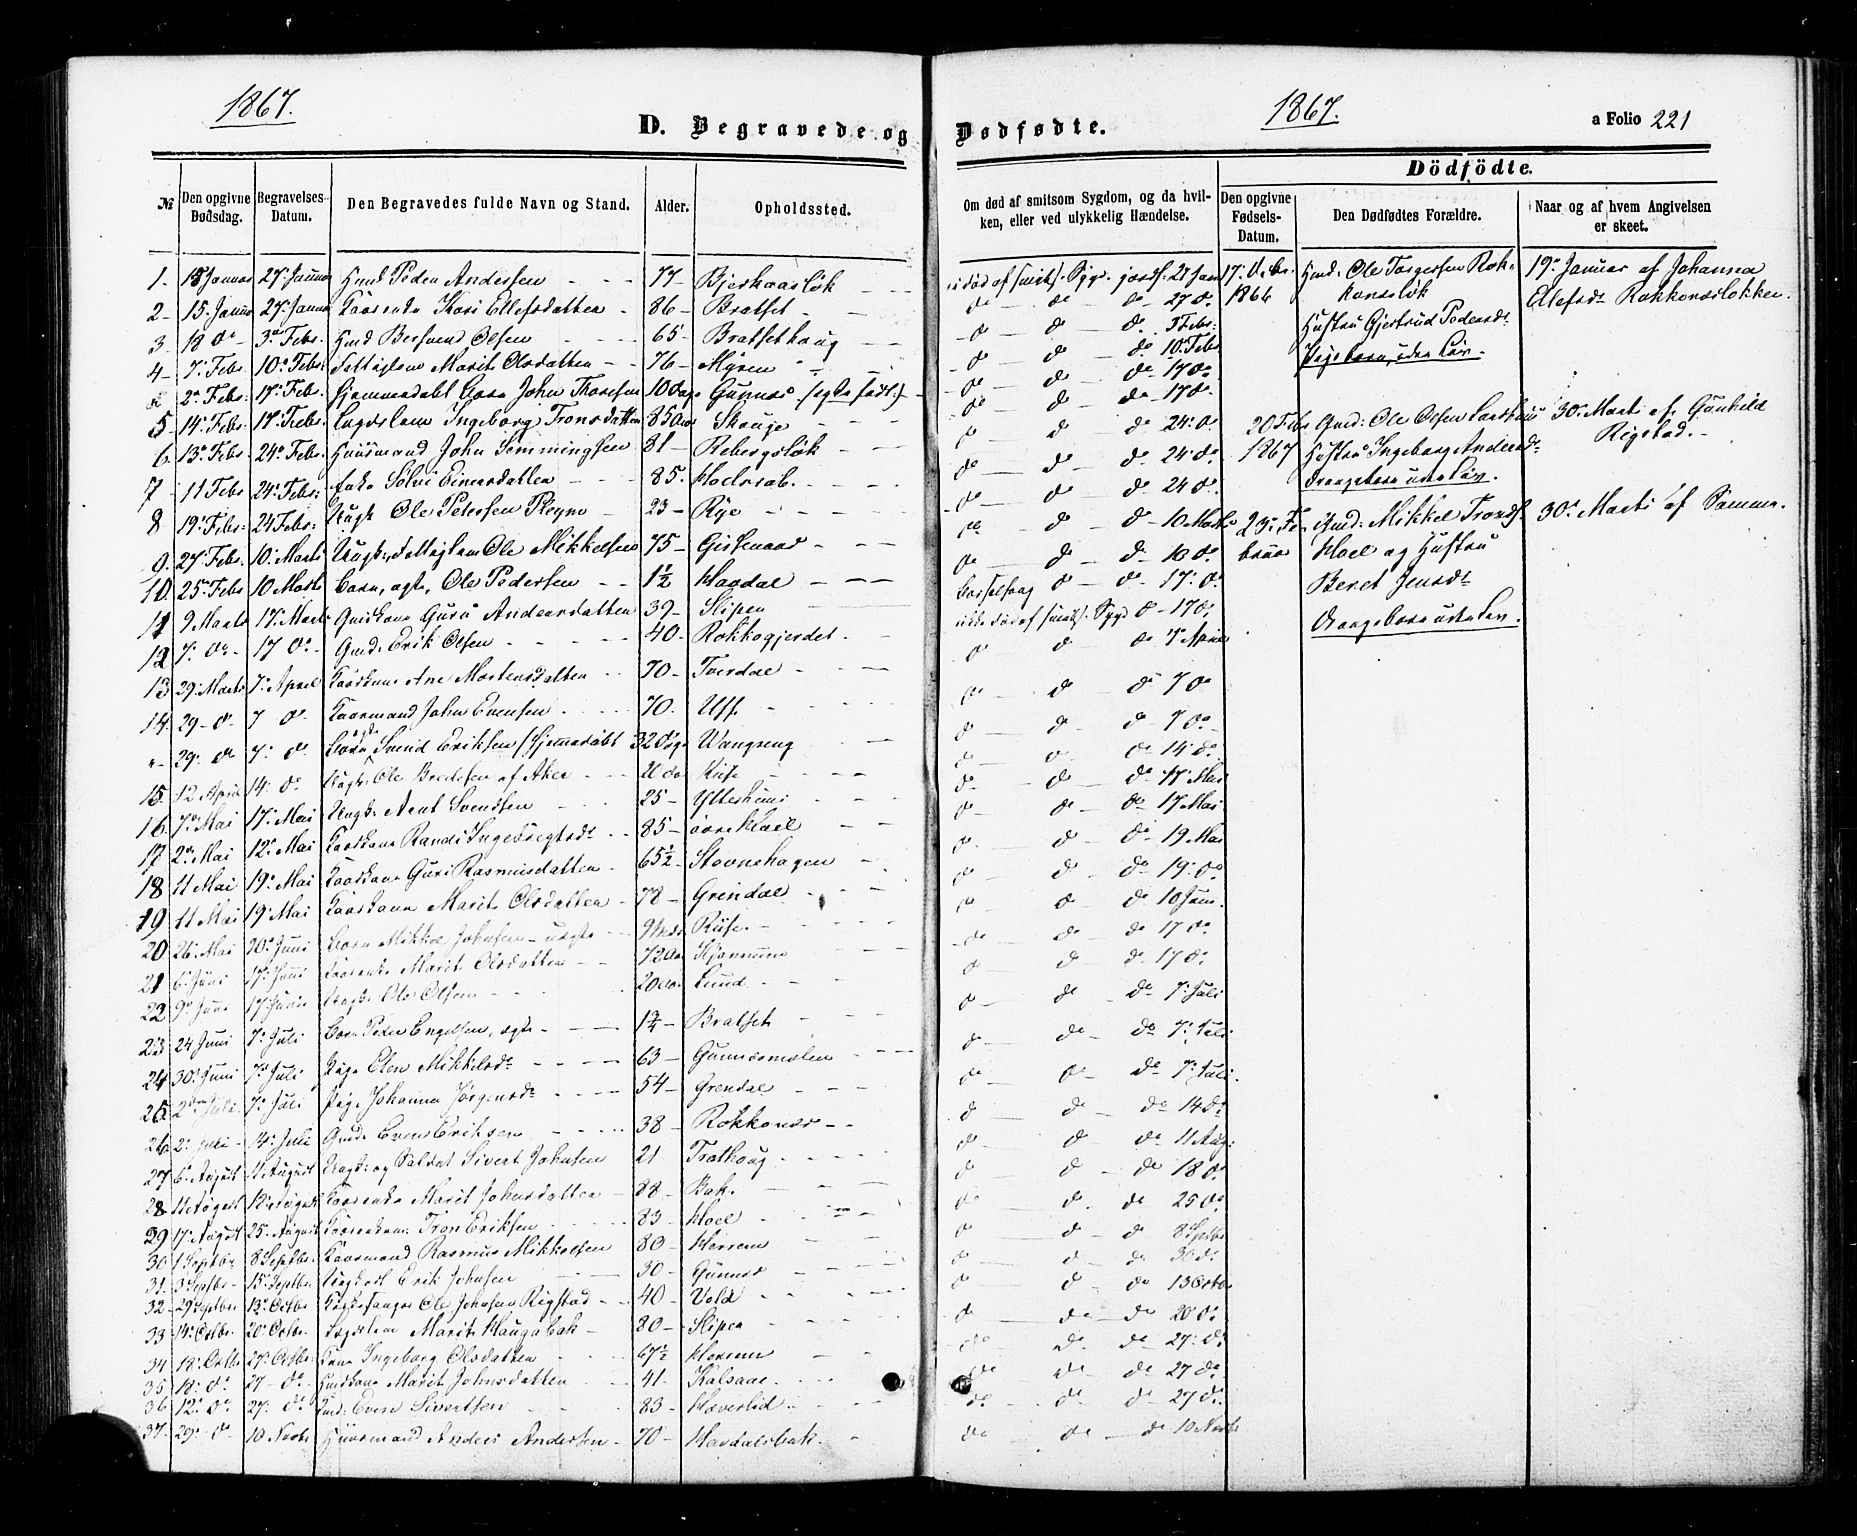 1867.
D. Begravede og
№
Den opgivne Dødsdag.
Begravelses-Datum.
Den Begravedes fulde Navn og Stand.
Alder.
Opholdssted.
1. 13 Januar 27. Januar Gmd Peder Andersen 77 Bjerkaasløk
2 15. Januar 27. Januar Kaarenke Kari Ellefsdatter 86 Bratset
3. 18 do 3 Febr. Gmd Bersvend Olsen 65 Bratsethaug
4 7. Febr. 10. Febr. Marit Olsdatter 76 Myren
2. Febr. 17. Febr. hjemmedøbt Barn John Thoresen 10 Dage Gunnes
5 14. Febr. 17. Febr. Lægdslem Ingeborg Tronsdatter 85 Aar Skauge
6. 13. Febr. 24. Febr. Huusmand John Semmingsen 81 Rebergsløk
7 11 Febr 24. Febr. Enke Solvi Einersdatter 85.
8 19. Febr. 24 Febr. Ungk Ole Petersen 23 Rye
9. 27. Febr. 10. Marts Ole Mikkelsen 75
10. 25. Febr 10 Marts Barn, ægte, Ole Pedersen 1½ Havdal
11 9 Marts 17. Marts Gmdkone Guru Andersdatter 39 Slipen
12 7. do 17 do Gmd. Erik Olsen 40 Rokkogjerdet
13 29. Marts 7. April Kaarkone Ane Mortensdatter 70 Tverdal
14. 29 do 7 do Kaarmand John Evensen 70. Uff
29. do 7. do Barn Svend Eriksen (hjemmedøbt 32 Dage Vangeng
15. 12 April 14. do Ungk. Ole Bredesen af Aker 20 do
16. 7. Mai 17. Mai Ungk. Arnt Svendsen 25 Ytterhuus
17 2. Mai 12. Mai Kaarkone Randi Ingebrigtsdr 85 øvre Hoel
18 11 Mai 19. Mai Kaarkone Guri Rasmusdatter 65½ Stovnehagen
19 11 Mai 19. Mai Kaarkone Marit Olsdatter 78 Grindal
20 26. Mai 20. Juni Barn Mikkel Johnsen uægte
21 6. Juni 17. Juni Kaarenke Marit Olsdatter 72 Aar
22 9. Juni 17. Juni Ungk. Ole Olsen 20 Aar Lund
23 24 Juni 7. Juli Barn Peder Engelsen, ægte 1¾ Bratset
24 30. Juni 7. Juli Pige Elen Mikkelsdr 63 Gunnesmoen
25 7. Juli Pige Johanna Jørgensdr 54 Grendal
26 2. Juli 14. Juli Gmd. Even Eriksen 38 Rokkones
27 6. August 11 August Ungk. og Soldat Sivert Johnsen 21 Trøthaug
28 11 August 18. August Kaarenke Marit Johnsdatter 88 Bak.
29 17. August 25. August Tron Eriksen 83 Hoel
30 1 Septbr 8 Septbr. Kaarmand Rasmus Mikkelsen 80 Herrem
31. 3 Septbr 15. Septbr. Ungkarl Erik Johnsen 30 Gunnes
32 29 Septbr. 13. Octbr. Ole Johnsen Rigstad 40 Vold
33 14. Octbr. 20. Octbr. Lægdslem Marit Haugabak 80 Slipen
34 18. Octbr. 27. Octbr. Kone Ingeborg Olsdatter 67½ Herrem
35 18. do 27 do Gmdkone Marit Johnsdatter 41 Kalsaae
36 12. do 27. do Gmd. Even Sivertsen 83 Høverlid
37 29. do 10 Novbr Huusmand Anders Andersen 70 Havdalsbak
Dødfødte.
1867.
a Folio 221
Om død af smitsom Sygdom, og da hvilken, eller ved ulykkelig Hændelse.
Dödfödte.
Den opgivne Fødsels-Datum.
Den Dødfødtes Forældre.
Naar og af hvem Angivelsen er skeet.
død af smits. Syge jordf. 27 Jan
do do do 27 do
do do do 3 Febr.
do do do 10. Febr
do do do 17 do
do do do 17 do
do do do 24. do
do do do 24. do
do do do 24 do
do do do 10 Marts
do do do 10 do
Barselseng do do 17. do
ikke død af smits. Syge do 17 do
do do do 7 April
do do do 7 do
do do do 7 do
do do do 14 do
do do do 17 Mai
do do do 17 Mai
do do do 19 Mai
do do do 19. do
do do do 10 Juni
do do do 17 do
do do do 17 do
do do do 7. Juli
do do do 7. Juli
do do do 7. Juli
do do do 14 do
do do do 11 Aug.
do do do 18 do
do do do 25 do
do do do 8 Septbr
do do do 30 do
do do do 13 Octbr
do do do 20 do
do do do 27. do
do do do 27 do
do do do 27 do
do do do 10 Novbr
17. Decbr. 1866
Gmd. Ole Torgersen Rokkonesløk
Hustru Gjertrud Pedersdr
Pigebarn, uden Liv.
19. Januar af Johanna
Ellefsdr Rokkonesløkken.
20 Febr 1867
Gmd. Ole Olsen
Hustru Ingeborg Andersdr
Drengebarn uden Liv.
30. Marts af Gunhild
Rigstad.
23. Februar
Gmd. Mikkel Tronds.
Hoel og Hustru
Beret Jensdr
Drengebarn uden Liv.
30. Marts af Samme.